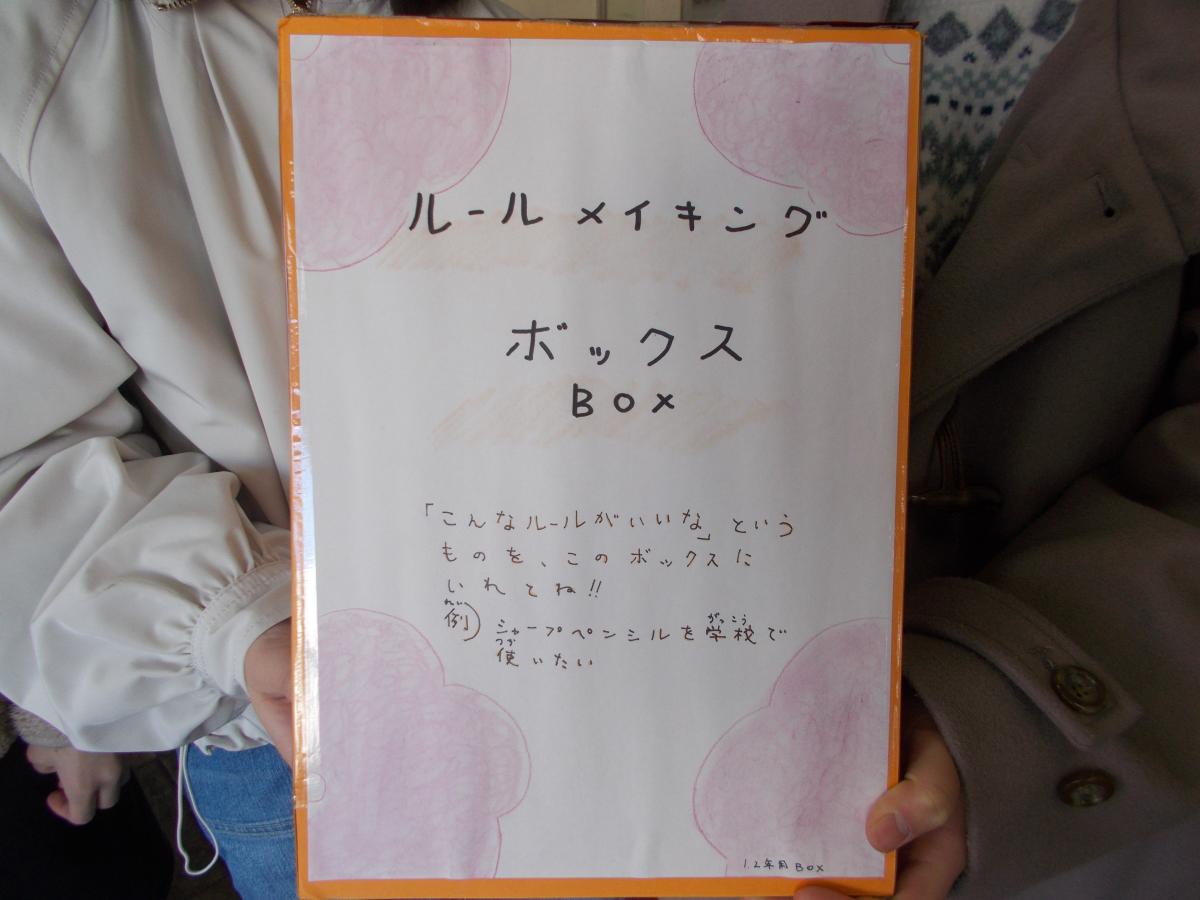 ルールメイキング
ボックス
BOX
「こんなルールがいいな」という
ものを、このボックスに
いれてね!!
れい
例) シャープペンシルを学校で
がっこう
つか
使いたい
1.2年用BOX